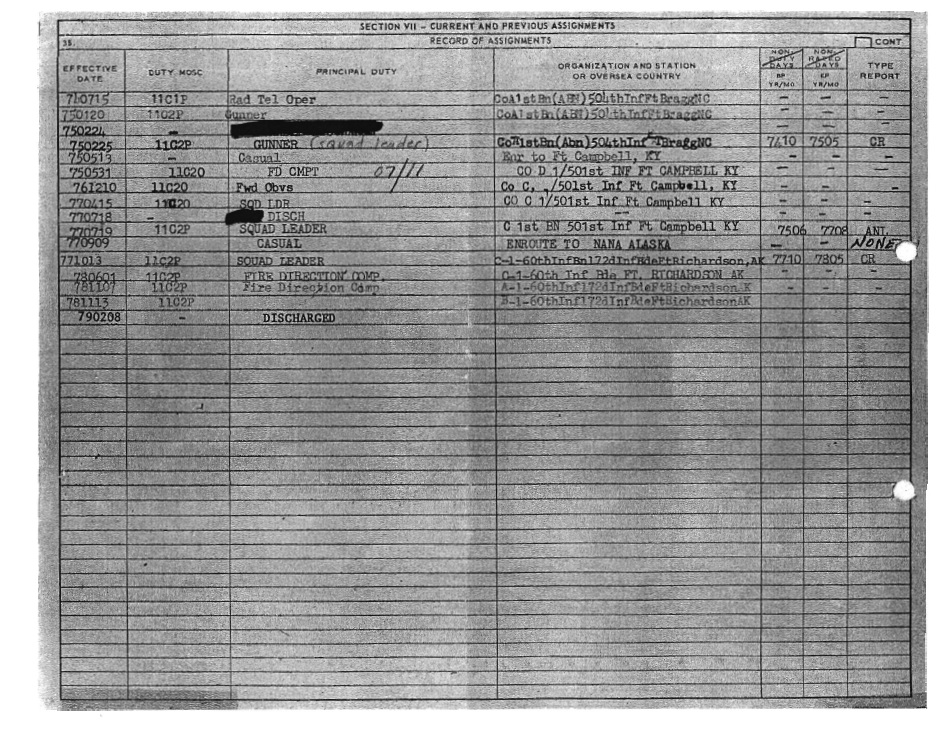 SECTION VII - CURRENT AND PREVIOUS ASSIGNMENTS
35. RECORD OF ASSIGNMENTS CONT
EFFECTIVE DATE DUTY MOSC PRINCIPAL DUTY ORGANIZATION AND STATION OR OVERSEA COUNTRY NON-DUTY DAYS BP YR/MO NON-RATED DAYS EP YR/MO TYPE REPORT
11C1P Rad Tel Oper CoA1stBn(ABN)504thInfFtBraggNC - - -
750120 11C2P Gunner CoA1stBn(ABN)504thInfFtBraggNC - - -
750224 - - - -
750225 11C2P GUNNER (squad leader) 1stBn(Abn)504thInf BraggNC 7410 7505 CR
750513 - Casual Enr to Ft Campbell, KY - - -
750531 11C20 FD CMPT 07/11 CO D 1/501st INF FT CAMPBELL KY - - -
761210 11C20 Fwd Obvs Co C, 1/501st Inf Ft Campbell, KY - - -
770415 11C20 SQD LDR CO C 1/501st Inf Ft Campbell KY - - -
770718 - DISCH -- - - -
770719 11C2P SQUAD LEADER C 1st BN 501st Inf Ft Campbell KY 7506 7708 ANL
770909 CASUAL ENROUTE TO NANA ALASKA - - NONE
771013 11C2P SQUAD LEADER C-1-60thInfBn172dInfBdeFtRichardson,AK 7710 7805 CR
780601 11C2P FIRE DIRECTION COMP. C-1-60th Inf Bde FT. RICHARDSON AK - - -
781107 11C2P Fire Direction Comp A-1-60thInf172dInfBdeFtRichardson K
781113 11C2P B-1-60thInf172dInfBdeFtRichardsonAK
790208 - DISCHARGED